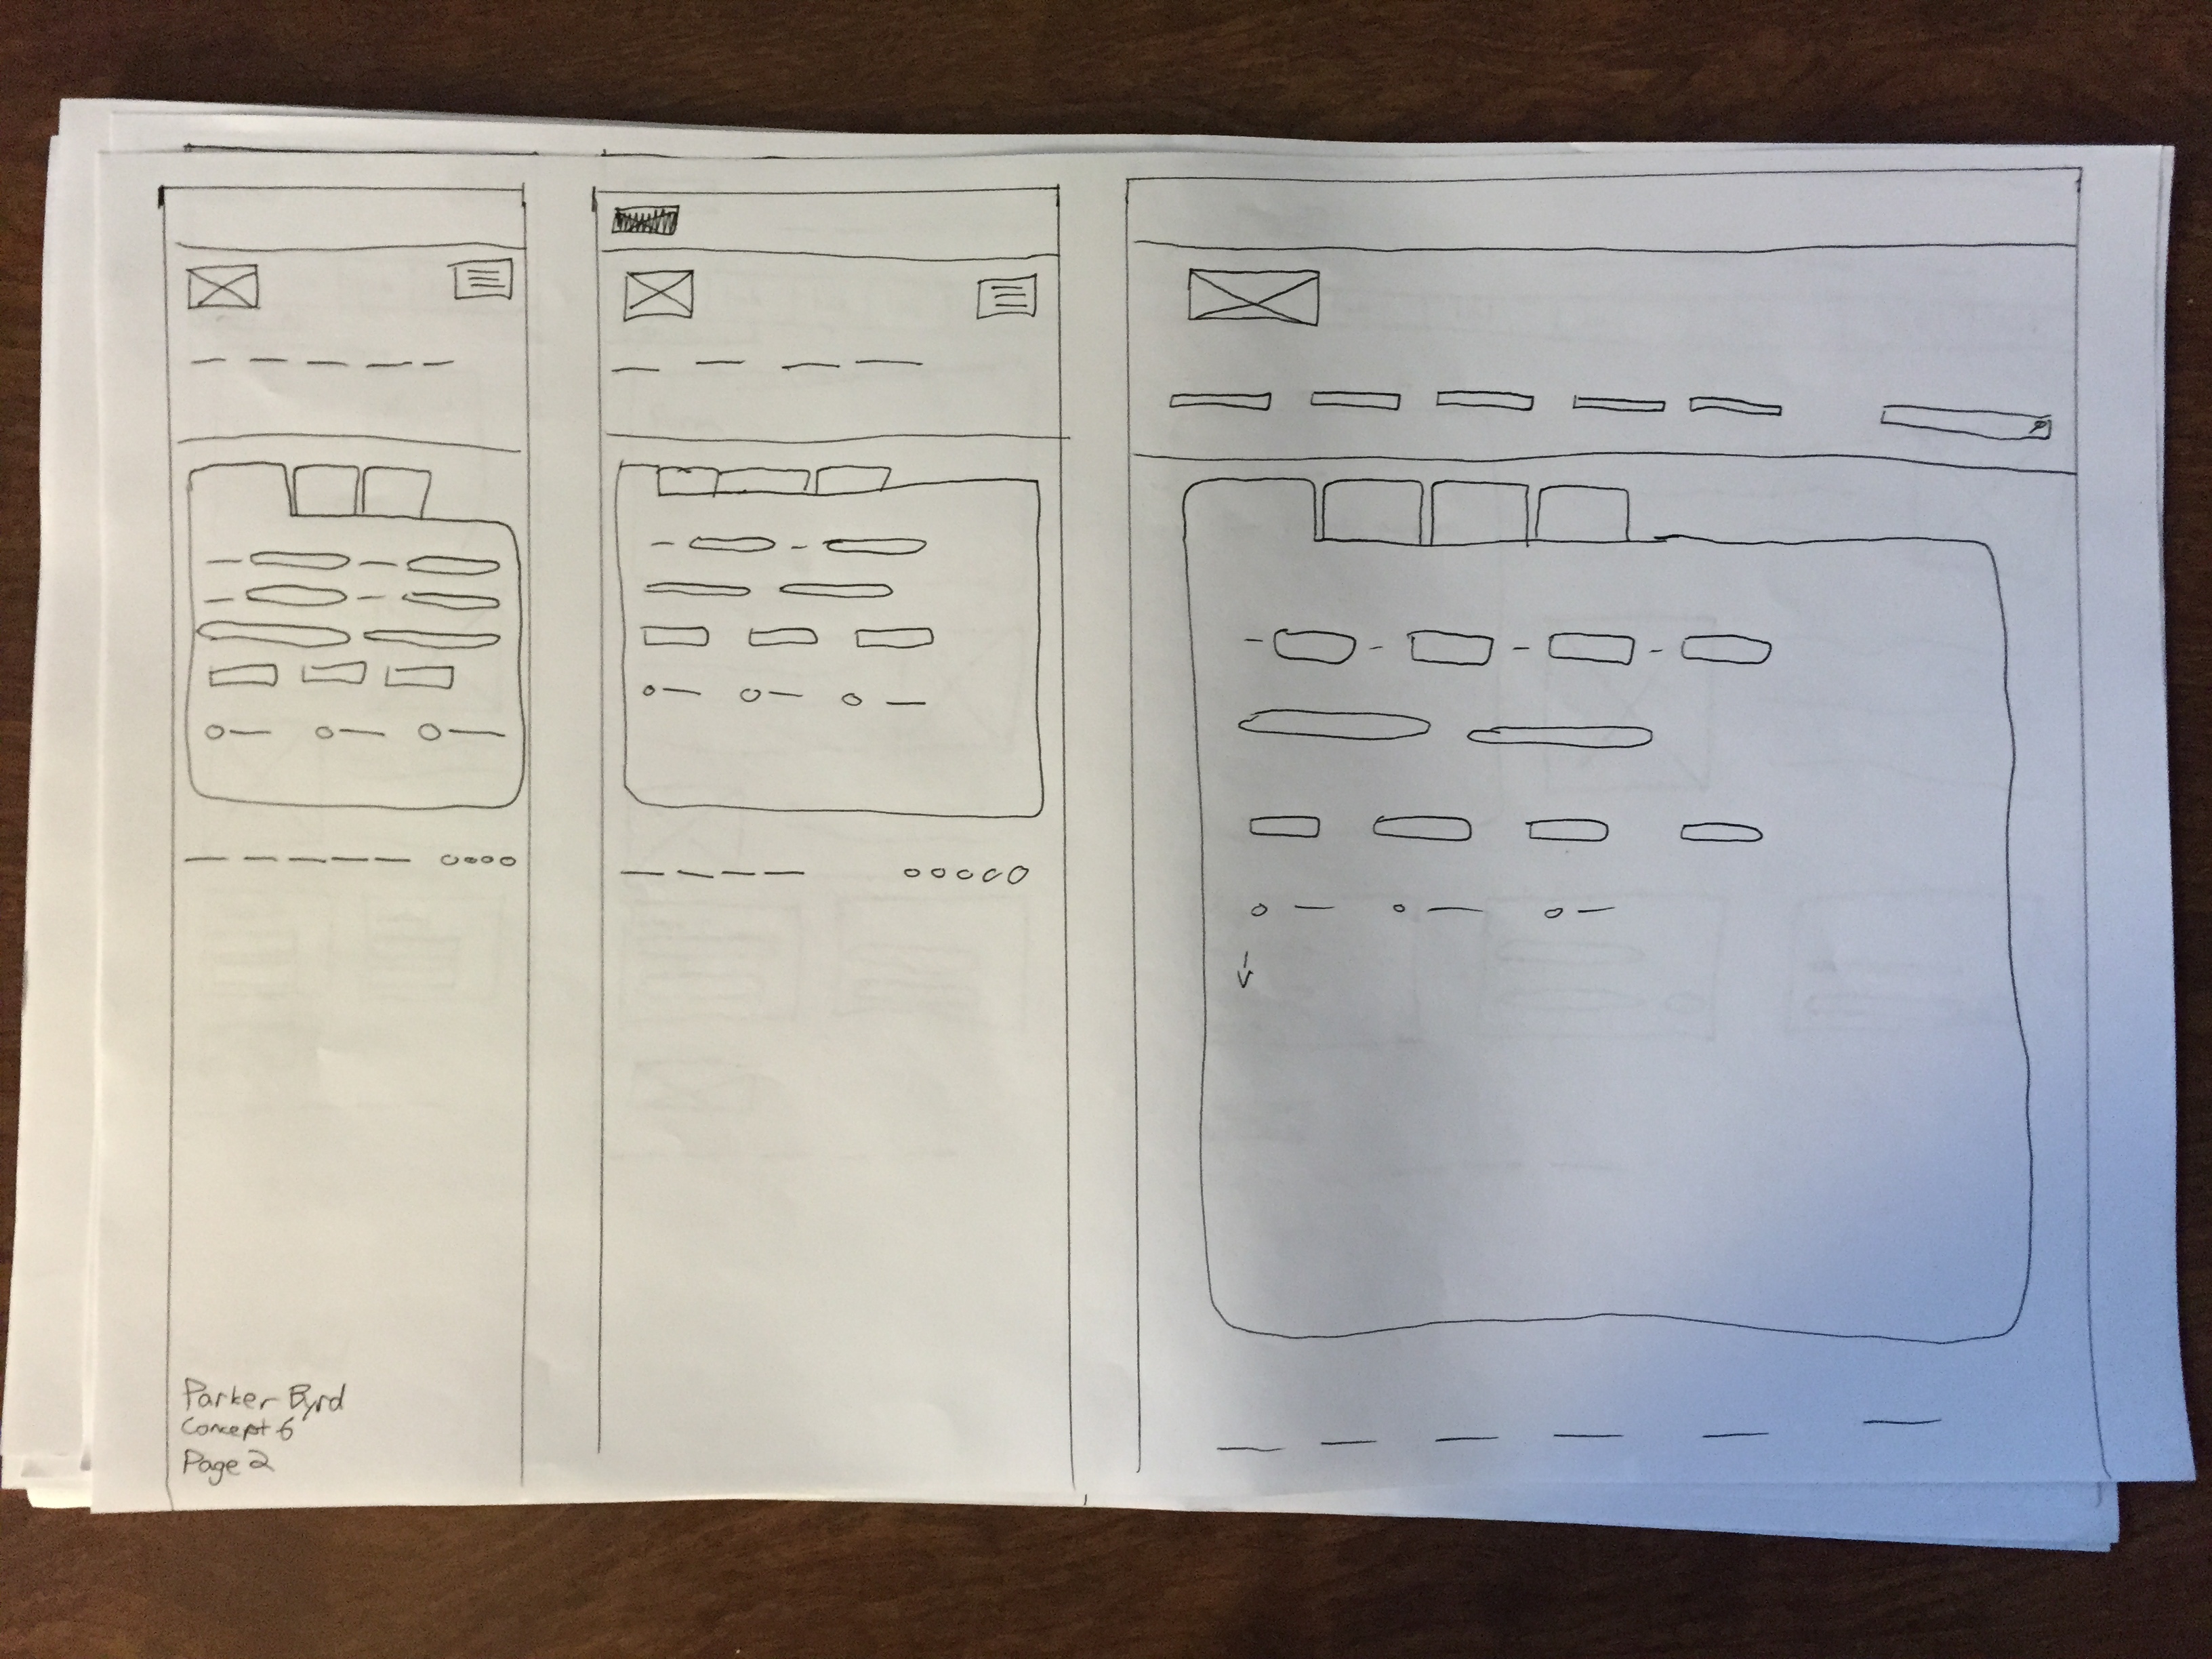 Parker Byrd
Concept 6
Page 2